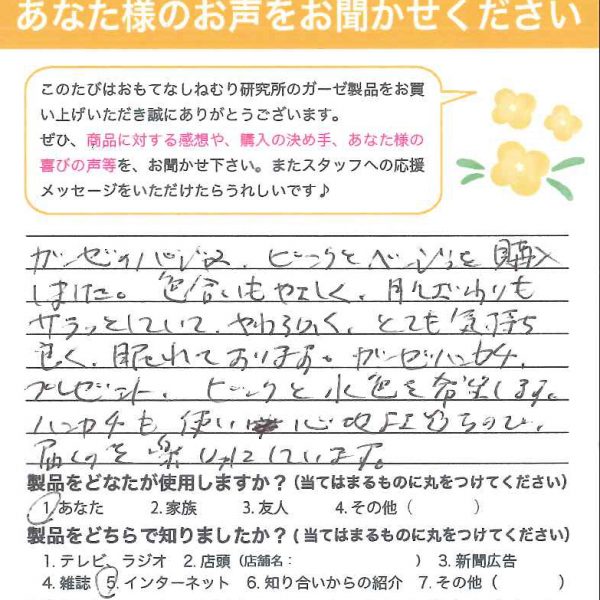 あなた様のお声をお聞かせください
このたびはおもてなしねむり研究所のガーゼ製品をお買
い上げいただき誠にありがとうございます。
ぜひ、商品に対する感想や、購入の決め手、あなた様の
喜びの声等を、お聞かせ下さい。またスタッフへの応援
メッセージをいただけたらうれしいです♪
ガーゼのパジャマ、ピンクとベージュを購入
しました。色合いもやさしく、肌ざわりも
サラッとしていて、やわらかく、とても気持ち
良く、眠れております。ガーゼハンカチ、
プレゼント、ピンクと水色を希望します。
ハンカチも使い心地よさそうなので、
届くのを楽しみにしています。
製品をどなたが使用しますか？(当てはまるものに丸をつけてください)
1.あなた 2.家族 3.友人 4.その他（ ）
製品をどちらで知りましたか？(当てはまるものに丸をつけてください)
1.テレビ、ラジオ 2.店頭（店舗名： ）3.新聞広告
4.雑誌 5.インターネット 6.知り合いからの紹介 7.その他（ ）